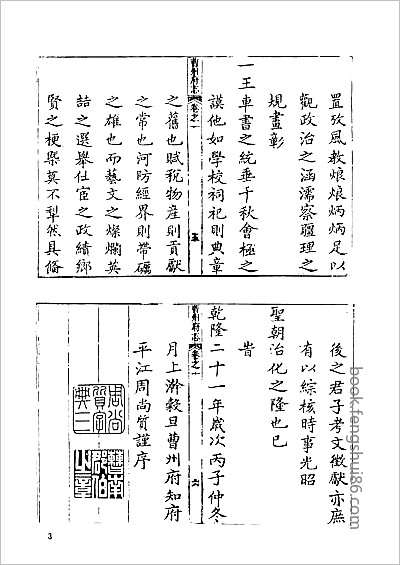 置攷風教烺烺炳炳足以
觀政治之涵濡察疆理之
規畫彰
一王車書之統垂千秋會極之
謨他如學校祠祀則典章
曹州府志 卷之一 五
之舊也賦税物産則貢獻
之常也河防經界則帶礪
之雄也而藝文之燦爛英
喆之選舉仕宦之政績鄉
賢之梗槩莫不犁然具備
後之君子考文徵獻亦庶
有以綜核時事光昭
聖朝治化之隆也已
旹
乾隆二十一年歲次丙子仲冬
曹州府志 卷之一 六
月上澣穀旦曹州府知府
平江周尚質謹序
周尚質字典三
之章
3
book.fengshui86.com